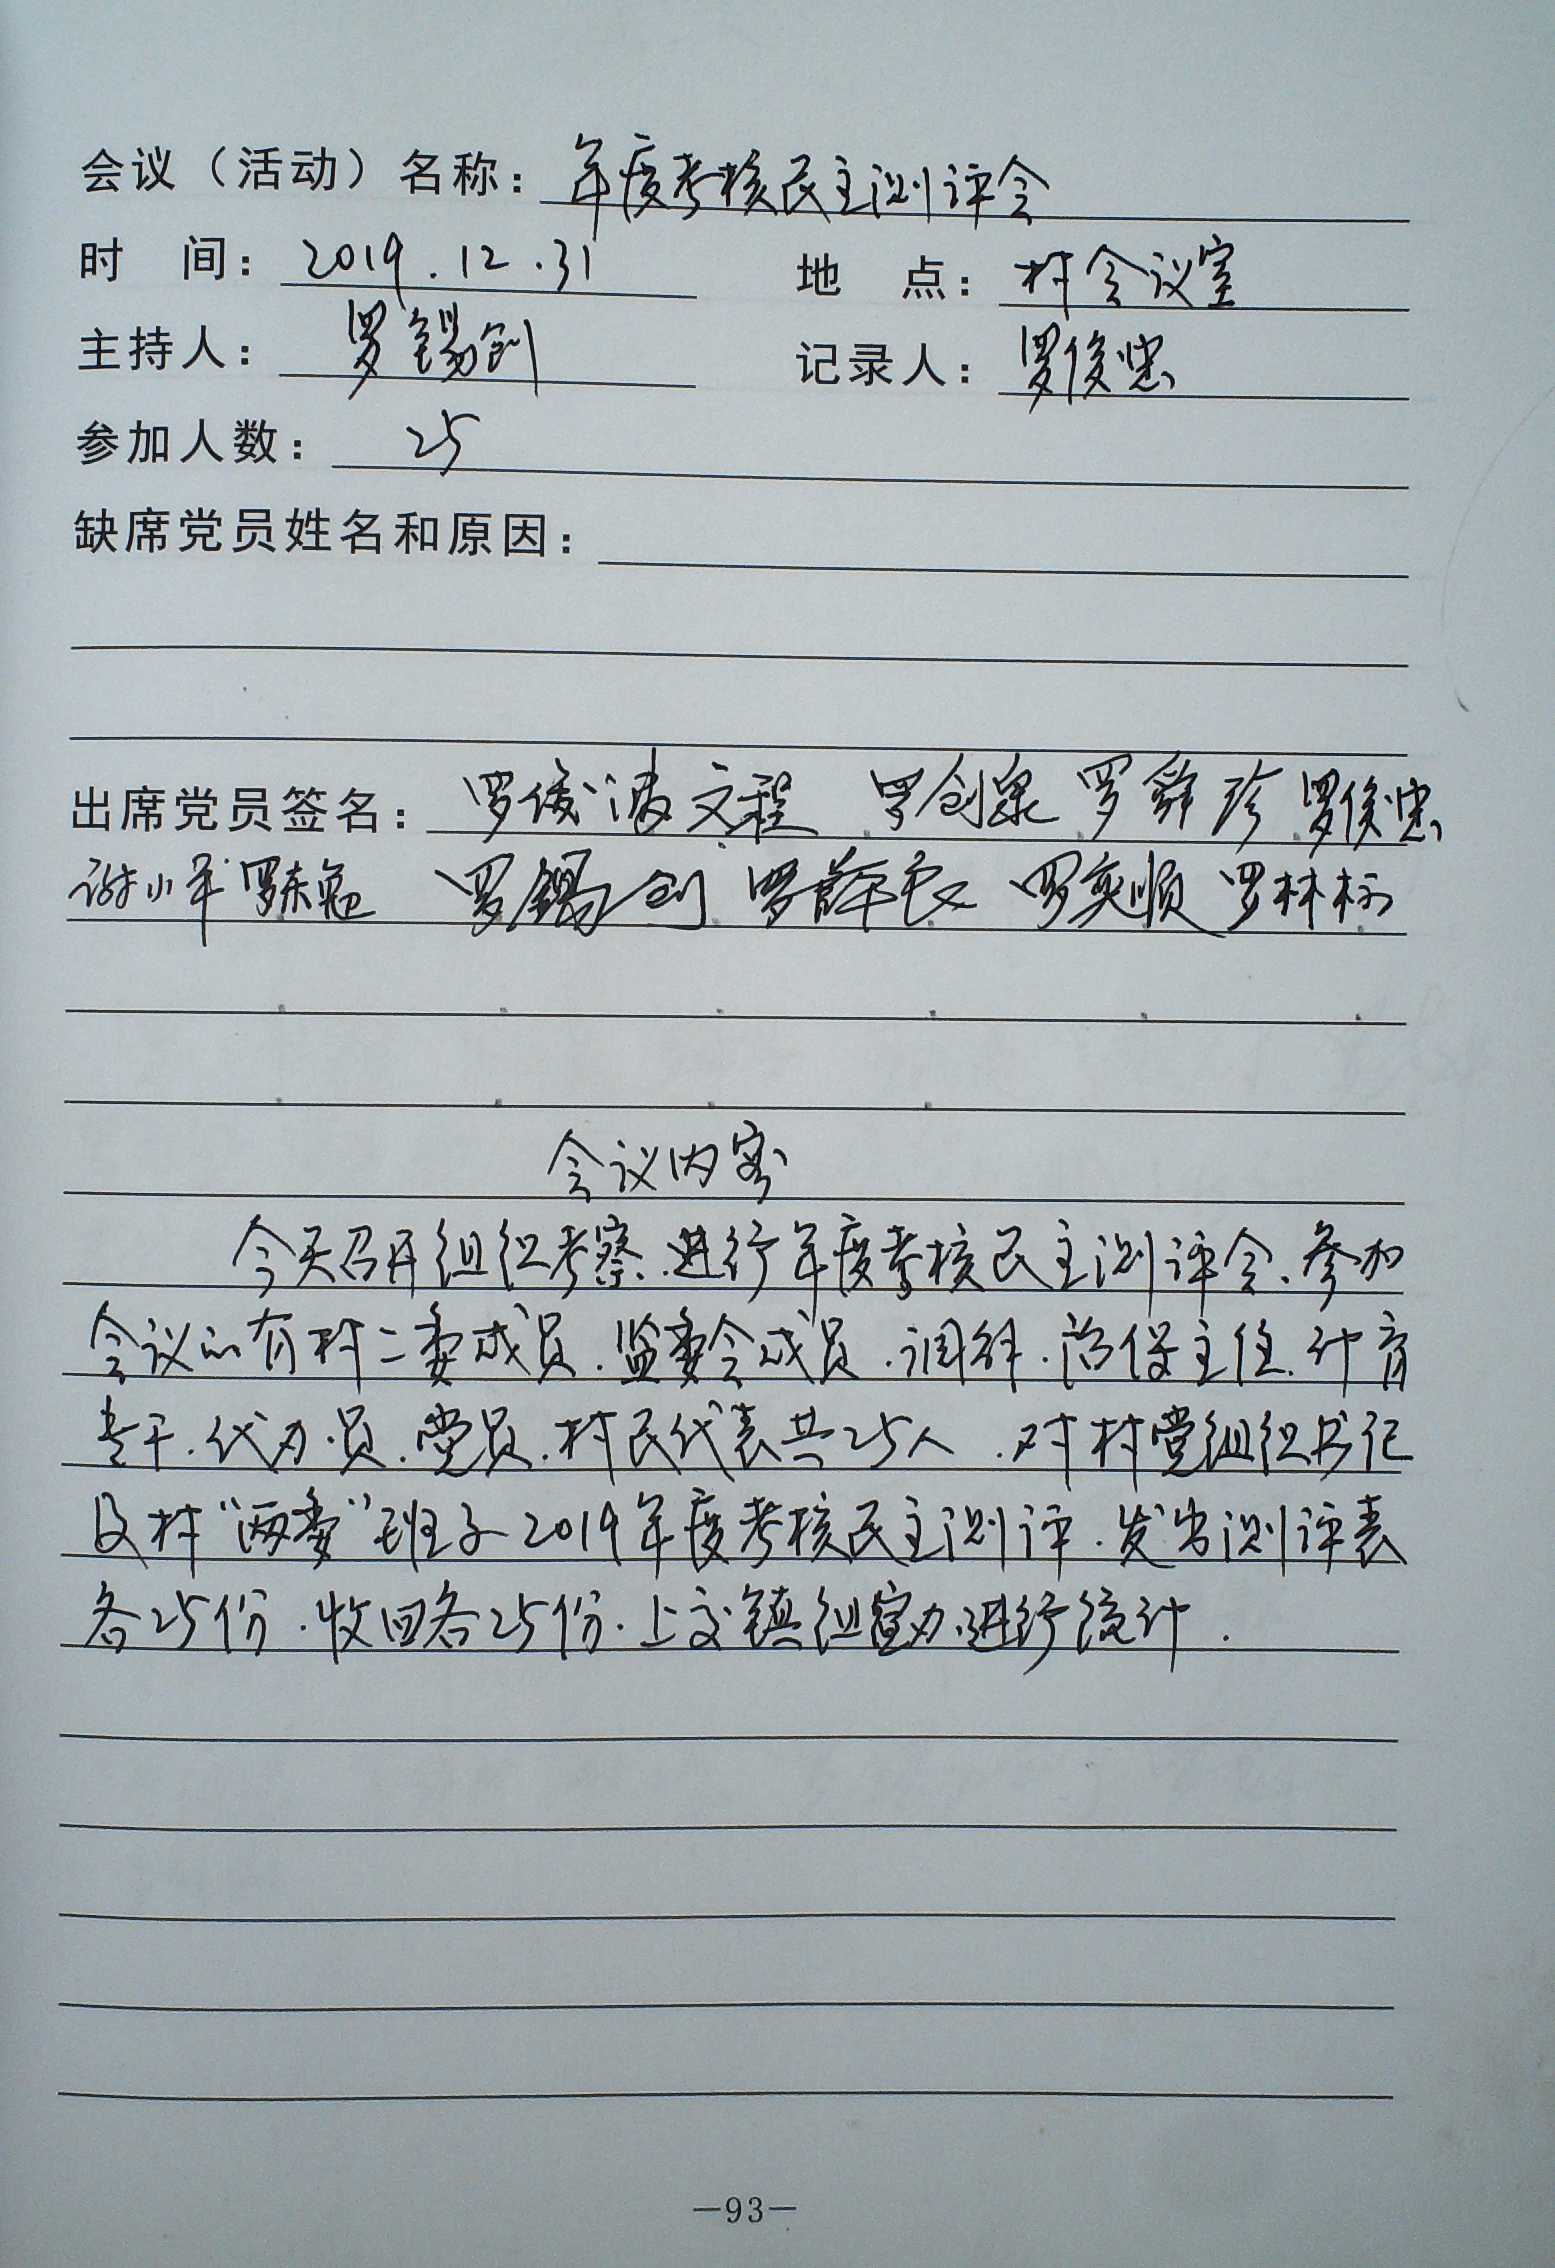 会议（活动）名称：年度考核民主测评会
时 间：2019.12.31 地 点：村会议室
主持人：罗锡创 记录人：罗俊忠
参加人数：25
缺席党员姓名和原因：
出席党员签名：罗俊 文程 罗创泉 罗舜珍 罗俊忠
谢小平 罗东 罗锡创 罗 罗奕顺 罗林
会议内容
今天召开组织考察、进行年度考核民主测评会、参加
会议的有村二委成员、监委会成员、调解、治保主任、计育
专干、代办员、党员、村民代表共25人、对村党组织书记
及村“两委”班子2019年度考核民主测评、发出测评表
各25份、收回各25份、上交镇组宣办进行统计.
—93—